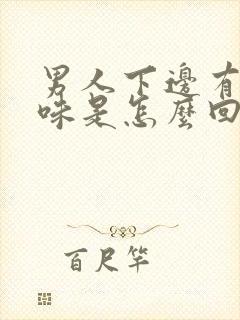 男人下邊有
味是怎麼回
百尺竿